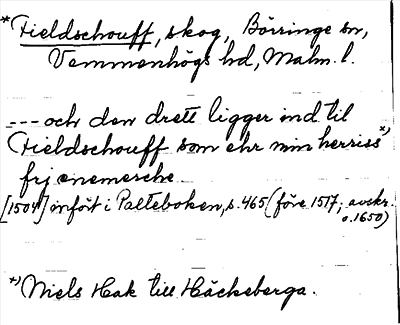 *Fieldschouff, skog, Börringe sn,
Vemmenhögs hd, Malm. l.
--- och den drett ligger ind til
Fieldschouff som ehr min herriss *)
frj enemercke
[1504] infört i Palteboken, s. 465 (före 1517; avskr.
o. 1650)
*) Niels Hak till Häckeberga.